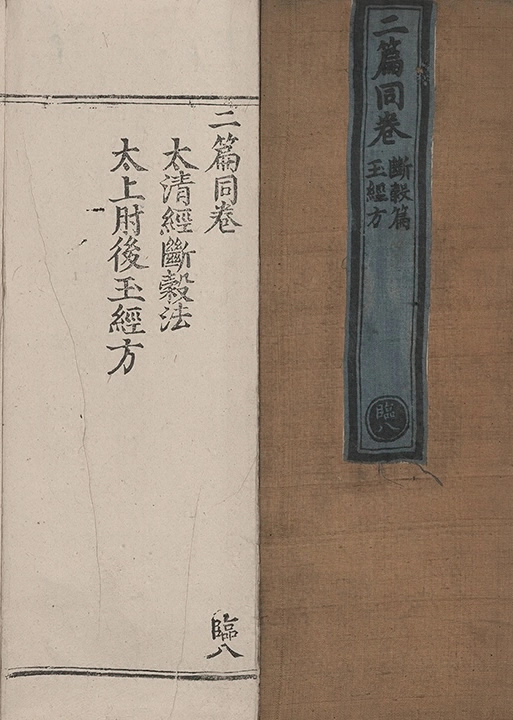 二篇同卷
斷穀篇
玉經方
臨八
二篇同卷
太清經斷穀法
太上肘後玉經方
臨八